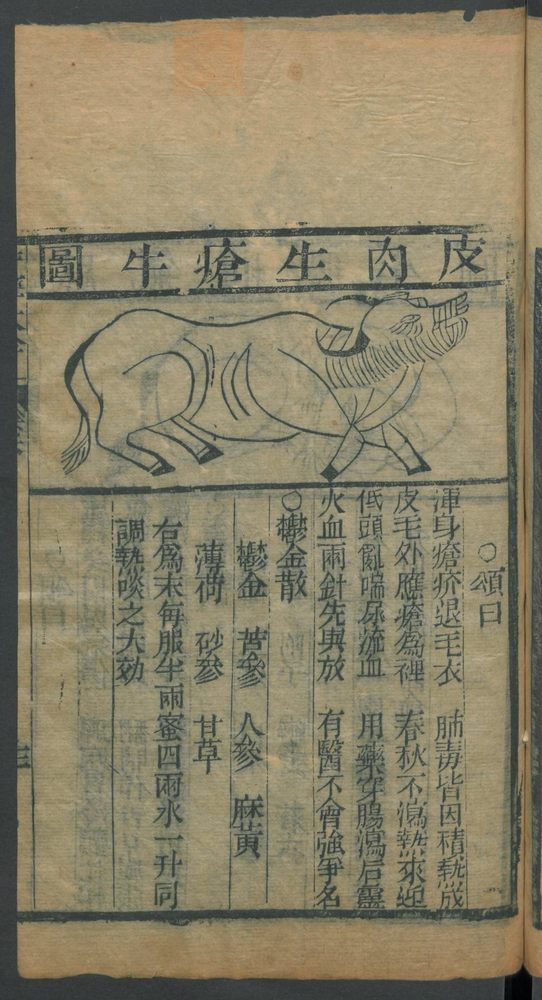 皮肉生瘡牛圖
○頌曰
渾身瘡疥退毛衣　肺毒皆因積𤍠成
皮毛外應瘡為裡　春秋不瀉𤍠來廹
低頭亂喘尿流血　用藥穿腸瀉后靈
火血兩針先與放　有醫不會強爭名
○鬱金散
鬱金　苦參　人參　麻黃
薄荷　砂參　甘草
右為末每服半兩蜜四兩水一升同
調𤍠啖之大効